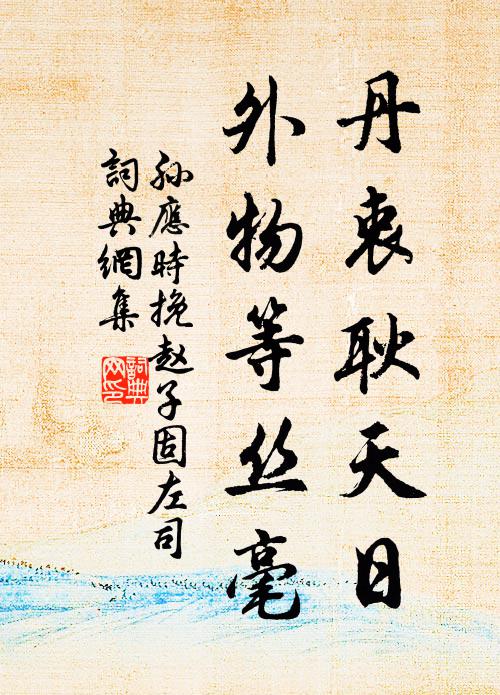 丹衷耿天日
外物等丝毫
孙應時挽赵子固左司
詞典網集
詞典网印